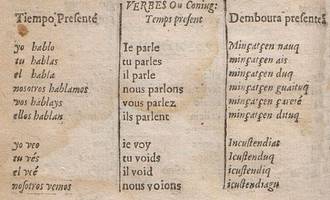 VERBES Ou Coniug:
Tiempo Presente Temps present Demboura presentea
yo hablo Ie parle Minçatçen nauq
tu hablas tu parles minçatçen ais
el habla il parle minçatçen duq
nosotros hablamos nous parlons minçatçen guaituq
vos hablays vous parlez minçatçen
ellos hablan ils parlent minçatçen dituq
yo veo ie voy Incustendiat
tu vés tu voids icustenduq
el veé il void icustendiq
nosotros vemos nous voions icustendiagu